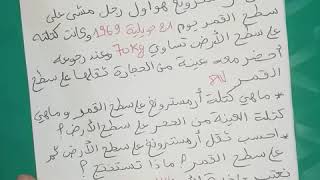 هو أول رجل مشى على
سطح القمر يوم 21 جويلية 1969 وكانت كتلته
على سطح الأرض تساوي 70kg وعند رجوعه
أحضر معه عينة من الحجارة ثقلها على سطح
القمر 8N
* ماهي كتلة أرمسترونغ على سطح القمر وماهي
كتلة العينة من الحجر على سطح الأرض؟
* احسب ثقل أرمسترونغ على سطح الأرض ثم
على سطح القمر؟ ماذا تستنتج؟
نعتبر